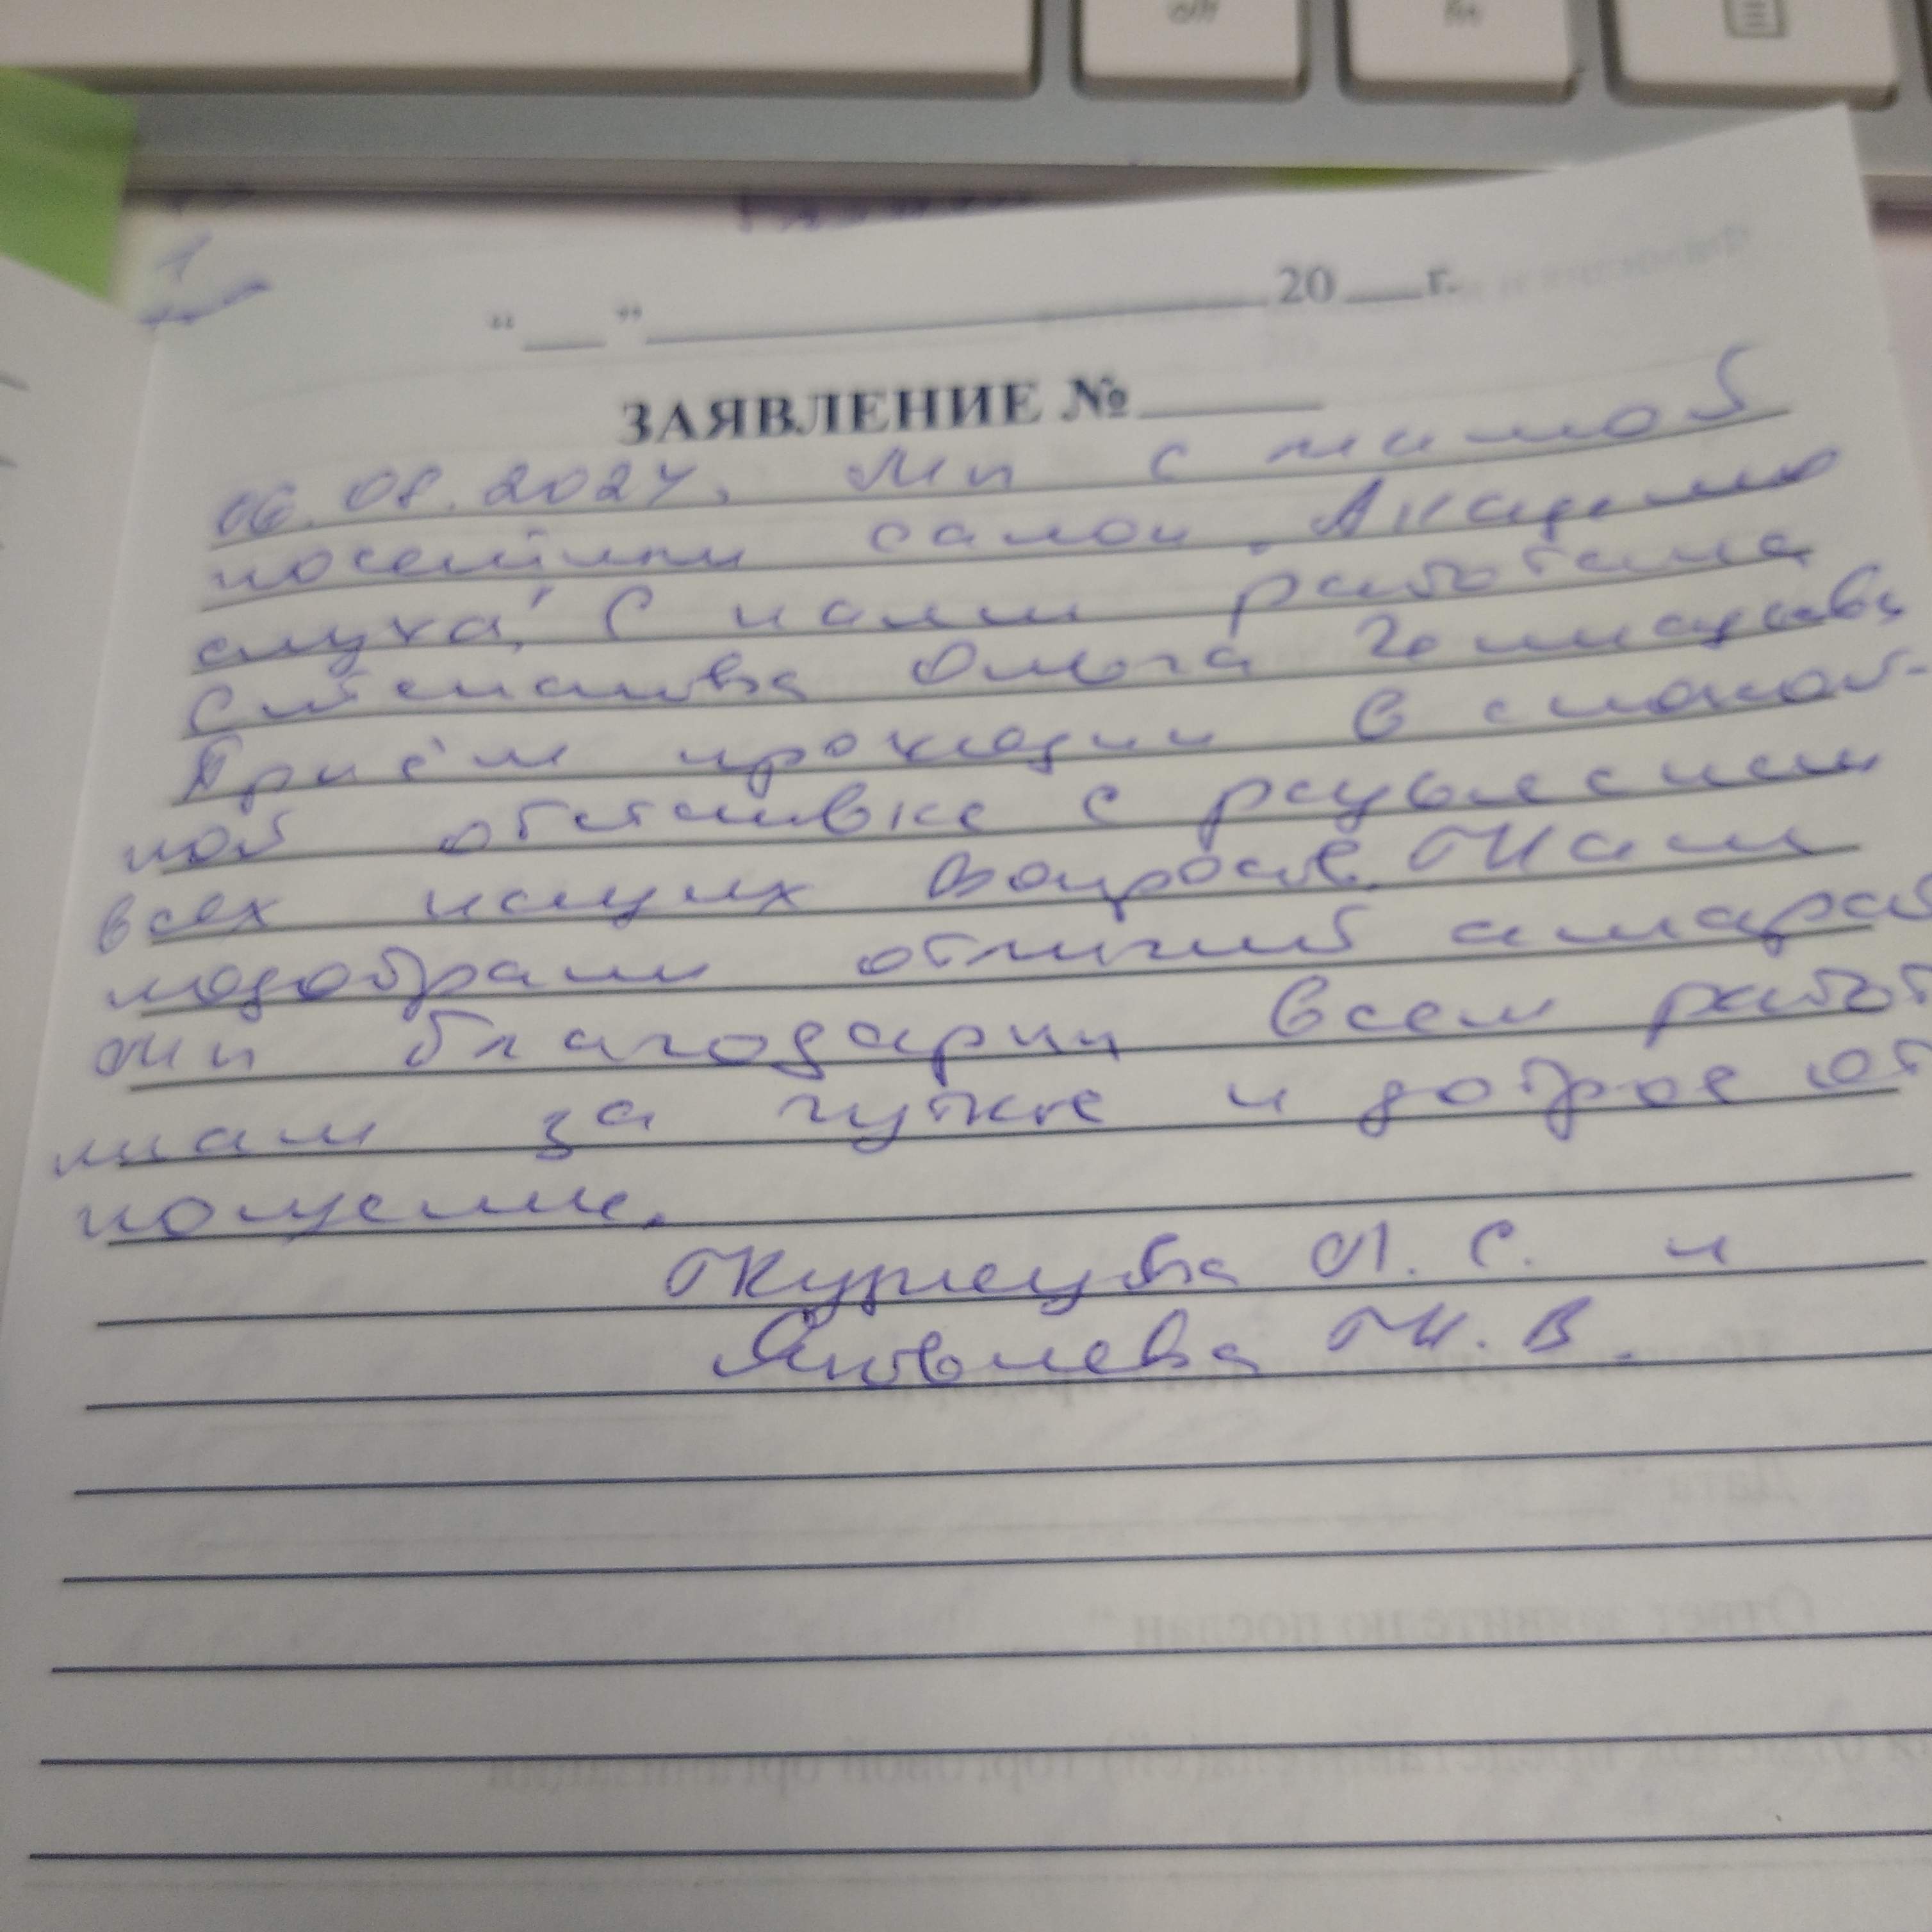 “___”______________20___г.
ЗАЯВЛЕНИЕ №______
06.08.2024. Мы с мамой
посетили салон „Академию
слуха". С нами работала
Степанова Ольга
Приём проходил в спокой-
ной обстановке с решением
всех наших вопросов. Нам
подобрали отличный аппарат
Мы благодарим всем работ
никам за чуткое и доброе от
ношение.
Кузнецова Л. С. и
Яковлева Н. В.